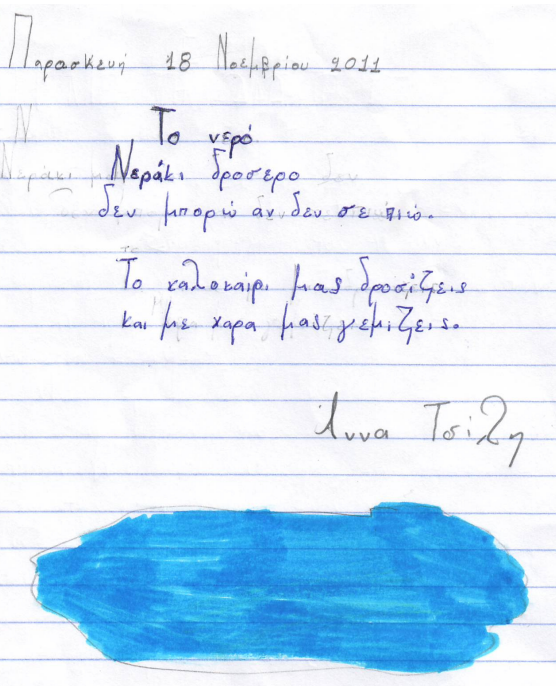 Παρασκευή 18 Νοεμβρίου 2011
Το νερό
Νεράκι δροσερο
δεν μπορώ αν δεν σε πιώ.
Το καλοκαίρι μας δροσίζεις
και με χαρα μας γεμίζεις.
Άννα